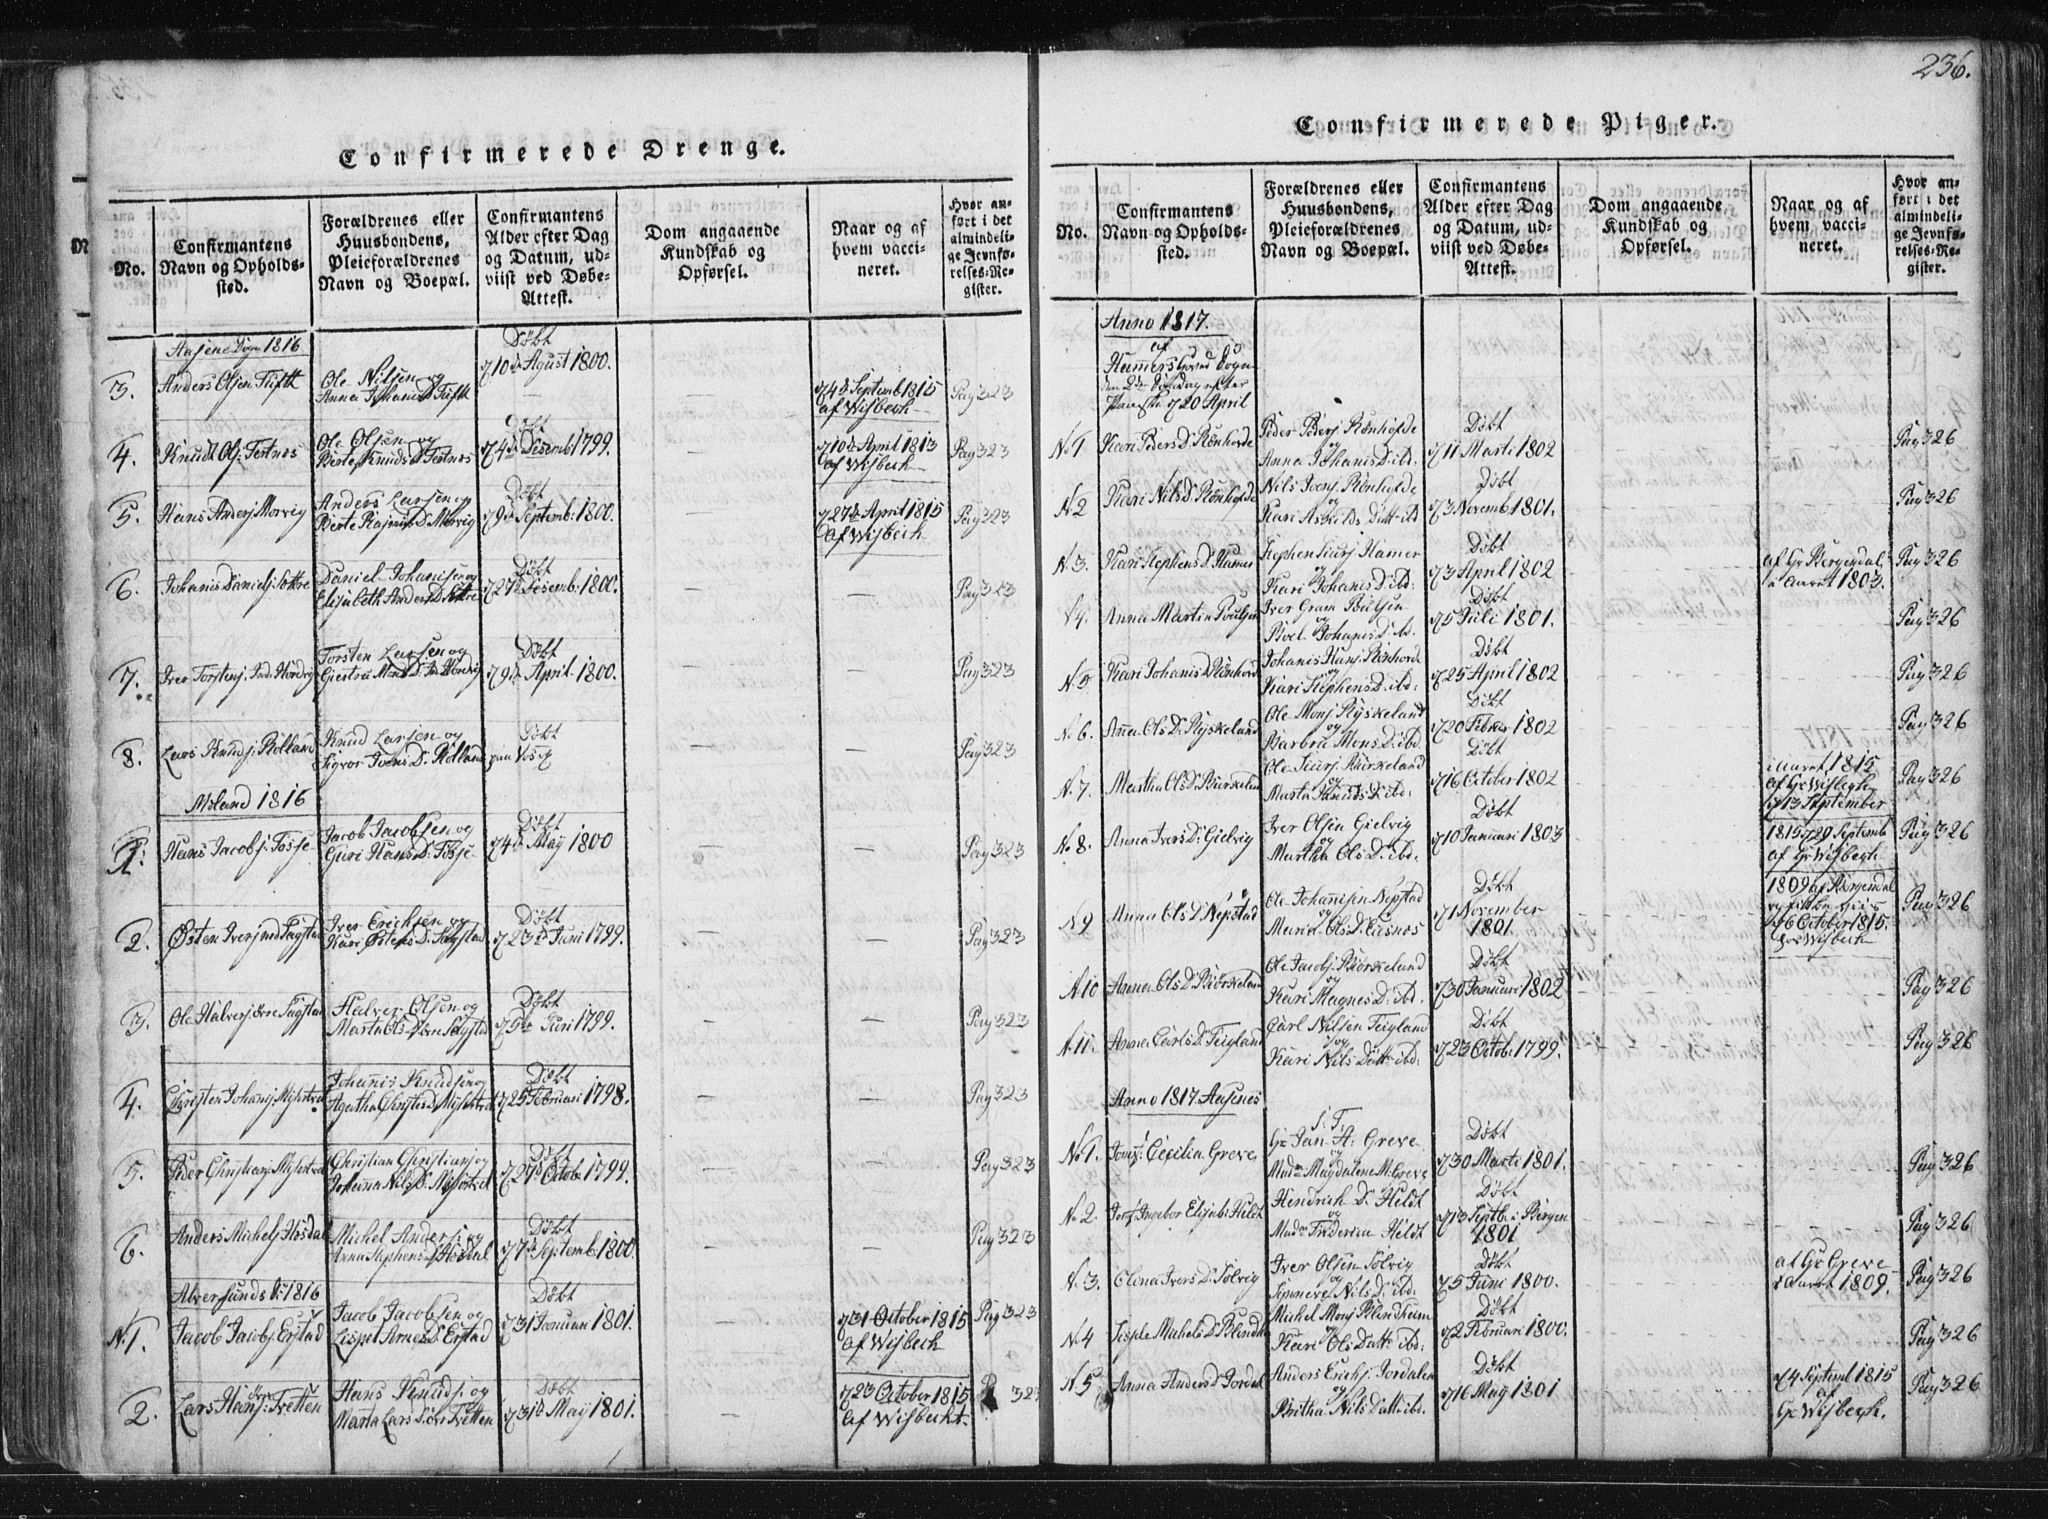 236.
Confirmerede Drenge.
No.
Confirmantens Navn og Opholds-sted.
Forældrenes eller Huusbondens, Pleieforældrenes Navn og Boepæl.
Confirmantens Alder efter Dag og Datum, ud-viist ved Døbe-Attest.
Dom angaaende Kundskab og Opførsel.
Naar og af hvem vacci-neret.
Hvor an-ført i det almindeli-ge Jevnfø-relses-Re-gister.
1816
Døbt
3.
Anders Olsen Tufth
Ole Nilsen og
Anna Johanis D. Tufth
10de Agust 1800.
4de Septemb 1815
af Wisbech
Pag 323
4.
Knudt Ols: Festnes
Ole Olsen og
Berte Knuds D. Festnes
Døbt
4de Desemb 1799.
10de April 1813
af Wisbech
Pag 323
5.
Hans Anders: Morvig
Anders Larsen og
Berte Rasmus D. Morvig
Døbt
9de Septemb: 1800.
27de April 1815
af Wisbech
Pag 323
6.
Johanis Daniels:
Daniel Johanisen og
Elisabeth Anders D.
Døbt
27de Desemb: 1800.
Pag 323
7.
Iver Torstens:
Torsten Larsen og
Døbt
9de April 1800.
Pag 323
8.
Lars Knuds: Rolland
Knud Larsen og
Sigvor Ivers D. Rolland
Døbt
paa Voss
Pag 323
Meland 1816
1.
Hans Jacobs: Fosse
Jacob Jacobsen og
Guri Hans D: Fosse
Døbt
4de May 1800
Pag 323
2.
Østen Ivers: ned Sagstad
Iver Erichsen og
Kari Østens D. Sagstad
Døbt
23de Juni 1799.
Pag 323
3.
Ole Halvers: øvre Sagstad
Halver Olsen og
Marta Ols D. øvre Sagstad
Døbt
5de Juni 1799.
Pag 323
4.
Christen Johanis: Mjøstrel
Johannis Knudsen og
Agatha Christens D.
Døbt
25 Februari 1798.
Pag 323
5.
Peder Christians:
Christian Christians: og
Johanna Nils D.
Døbt
27de Octob. 1799.
Pag 323
6.
Anders Michels: Hosdal
Michel Anders: og
Anna Stephens D. Hosdal
Døbt
7de Septemb 1800.
Pag 323
Alversunds S: 1816
No 1.
Jacob Jacobs: Erstad
Jacob Jacobsen og
Lispet Arnes D. Erstad
Døbt
31 Januari 1801.
31 October 1815
af Wisbech
Pag 323
2.
Lars Hans: øvre Tvetten
Hans Knuds: og
Marta Lars D. øvre Tvetten
Døbt
31de May 1801.
23 October 1815
af Wisbecht.
Confirmerede Piger.
No.
Confirmantens Navn og Opholds-sted.
Forældrenes eller Huusbondens, Pleieforældrenes Navn og Boepæl.
Confirmantens Alder efter Dag og Datum, ud-viist ved Døbe-Attest.
Dom angaaende Kundskab og Opførsel.
Naar og af hvem vacci-neret.
Hvor an-ført i det almindeli-ge Jevnfø-relses-Re-gister.
Anno 1817.
af
Hammers Hoved Sogn
den 2de Søndag efter
Paaske 20 April
No 1
Kari Peders D. Rønhovde
Peder Peders: Rønhovde
og
Anna Johanis D. ibd.
Døbt
11 Marti 1802
Pag 326
No 2
Kari Nils D. Rønhovde
Nils Ivers: Rønhovde
og
Kari Askilds Datt. ibd
Døbt
3 Novemb 1801.
Pag 326
N. 3.
Kari Stephens D. Hamer
Stephen Siurs: Hamer
og
Kari Johanis D: ibd:
Døbt
3 April 1802
af Hr Bergendal
i Aaret 1803.
Pag 326
N 4.
Anna Martin Poulsen
Iver Gram Poulsen
og
Roel Johanis D. ibd.
Døbt
5 Juli 1801.
Pag 326
N. 5
Kari Johanis D. Rønhovde
Johanis Hans: Rønhovde
og
Kari Stephens D. ibd:
Døbt
25 April 1802
Pag 326
N. 6.
Anna Ols D. Ryskeland
Ole Mons: Ryskeland
og
Barbra Mons D: ibd.
Døbt
20 Febr 1802
Pag 326
N. 7.
Martha Ols D. Biørkeland
Ole Siurs: Biørkeland
og
Marta Knuds D: ibd:
Døbt
16 October 1802
i Aaret 1815
af Hr Wisbegh
13 September
Pag 326
No 8.
Anna Ivers D. Gielvig
Iver Olsen Gielvig
og
Martha Ols D. ibd:
Døbt
10 Januari 1803
1815 29 Septemb
af Hr Wisbegh
Pag 326
N 9
Anna Ols D. Nepstad
Ole Johannisen Nepstad
og
Maria Ols D. Eisnes
Døbt
1 November
1801.
1809 af Bergendal
6 October 1815.
hos Wisbech
Pag 326
N 10
Anna Ols D. Biørkeland
Ole Jacobs: Biørkeland
og
Kari Magnes D: ibd.
Døbt
30 Januari 1802
Pag 326
N. 11.
Anna Carls D. Feigland
Carl Nilsen Feigland
og
Kari Nils Datt: ibd:
Døbt
23 Octobr 1799.
Pag 326
Anno 1817.
No 1.
Jomf: Cecilia Greve
S: T.
Hr Jan A: Greve
og
Madm Magdalene M. Greve
Døbt
30 Marti 1801.
Pag 326
No 2.
Jomf Ingebor Elisab: Heldt
Hendrich D. Heldt
og
Madm Friderica Heldt
Døbt
13 Septb. i Bergen
1801
Pag 326
N. 3.
Olina Ivers D. Solvig
Iver Olsen Solvig
og
Synneve Nils D: ibd:
Døbt
5 Juni 1800.
af Hr Greve
i Aaret 1809.
Pag 326
N. 4
Michels D. Blendh
Michel Mons: Blendheim
og
Kari Ols Datt: ibd:
Døbt
2 Februari 1800.
Pag 326
N. 5
Anna Anders D. Jordal
Anders Erichs: Jordalen
og
Britha Nils Datt: ibd.
Døbt
16 May 1801
4 Septeml 1815
af
Hr Wisbegh.
Pag 326